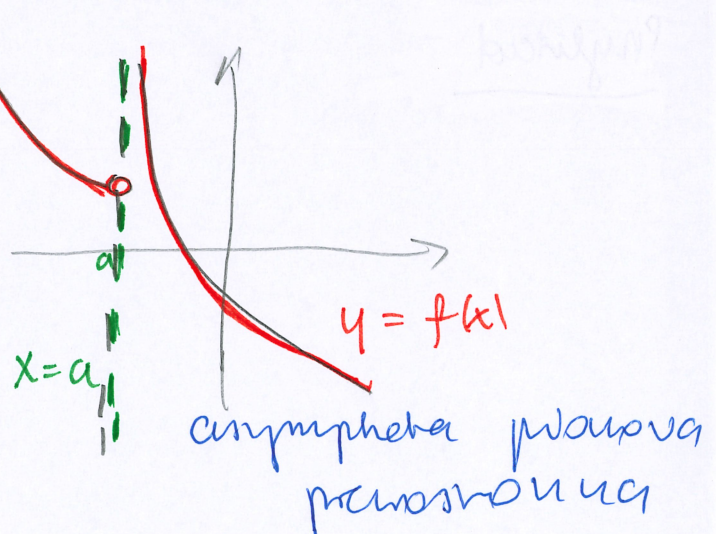 a
y = f(x)
x = a
asymptota pionowa
prawostronna